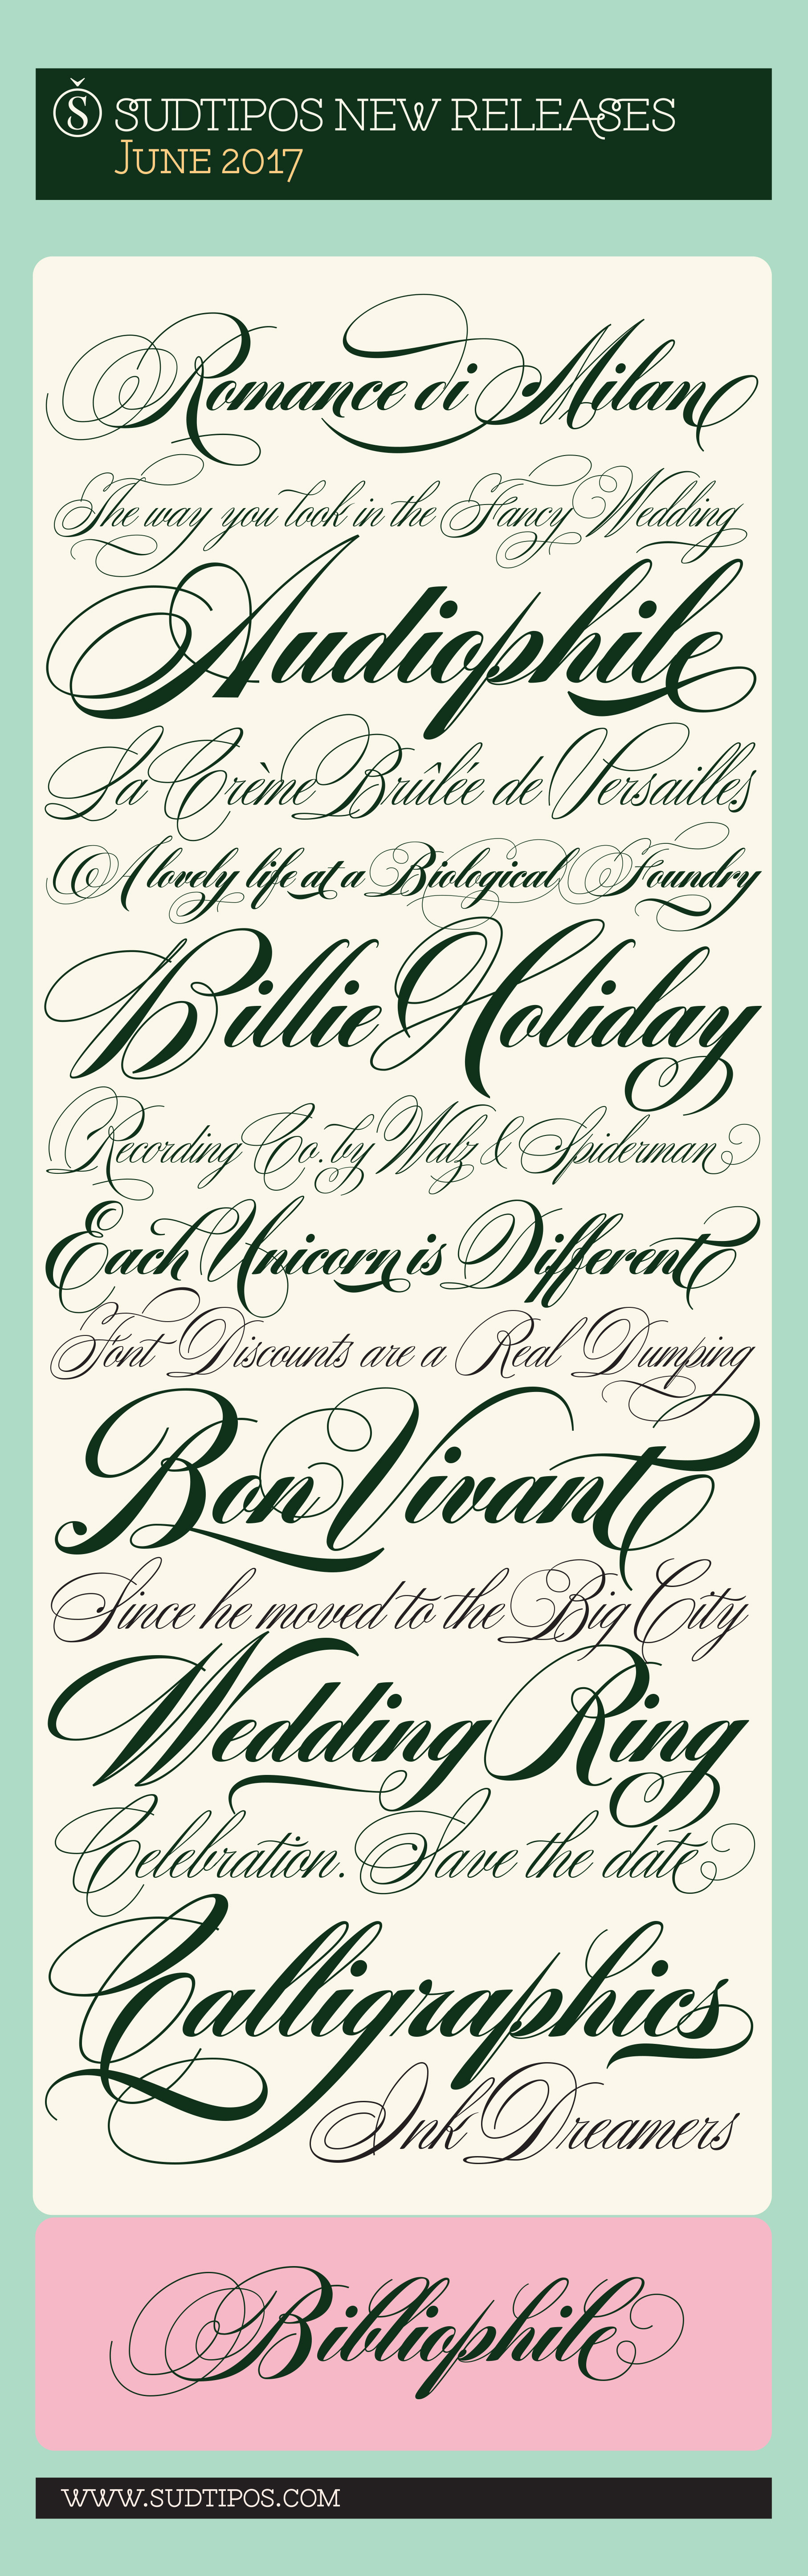 Š SUDTIPOS NEW RELEASES
JUNE 2017
Romance di Milan
The way you look in the Fancy Wedding
Audiophile
La Crème Brûlée de Versailles
A lovely life at a Biological Foundry
Billie Holiday
Recording Co. by Walz & Spiderman
Each Unicorn is Different
Font Discounts are a Real Dumping
Bon Vivant
Since he moved to the Big City
Wedding Ring
Celebration. Save the date
Calligraphics
Ink Dreamers
Bibliophile
WWW.SUDTIPOS.COM